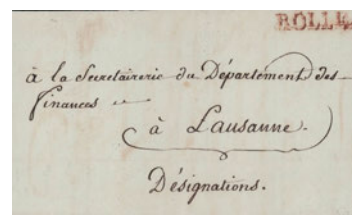 ROLLE
à la Secretairerie du Département des
finances
à Lausanne.
Désignations.